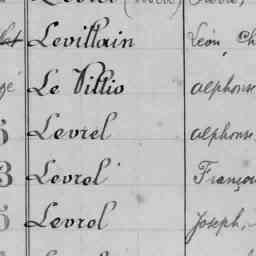 Levillain Léon, Ch
Le Villio alphonse
Levrel alphonse
3 Levrol Françoi
Levrol Joseph,